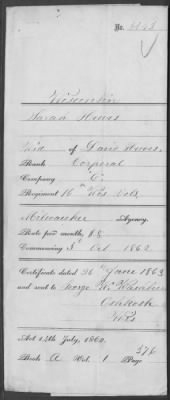 No.
Wisconsin
Sarah Howes
Wid of David Howes
Rank Corporal
Company "C"
Regiment 16th Wis Vols
Milwaukee Agency.
Rate per month, $8
Commencing 8 Oct 1862
Certificate dated 26th June 1863
and sent to George W.
Oshkosh
Wis
Act 14th July, 1862.
Book A Vol. 1 Page 376